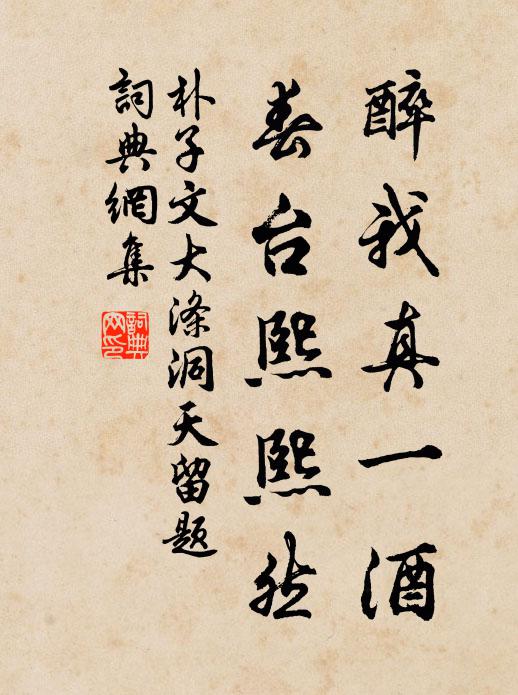 醉我真一酒
春台熙熙然
朴子文大涤洞天留题
詞典網集
詞典網印